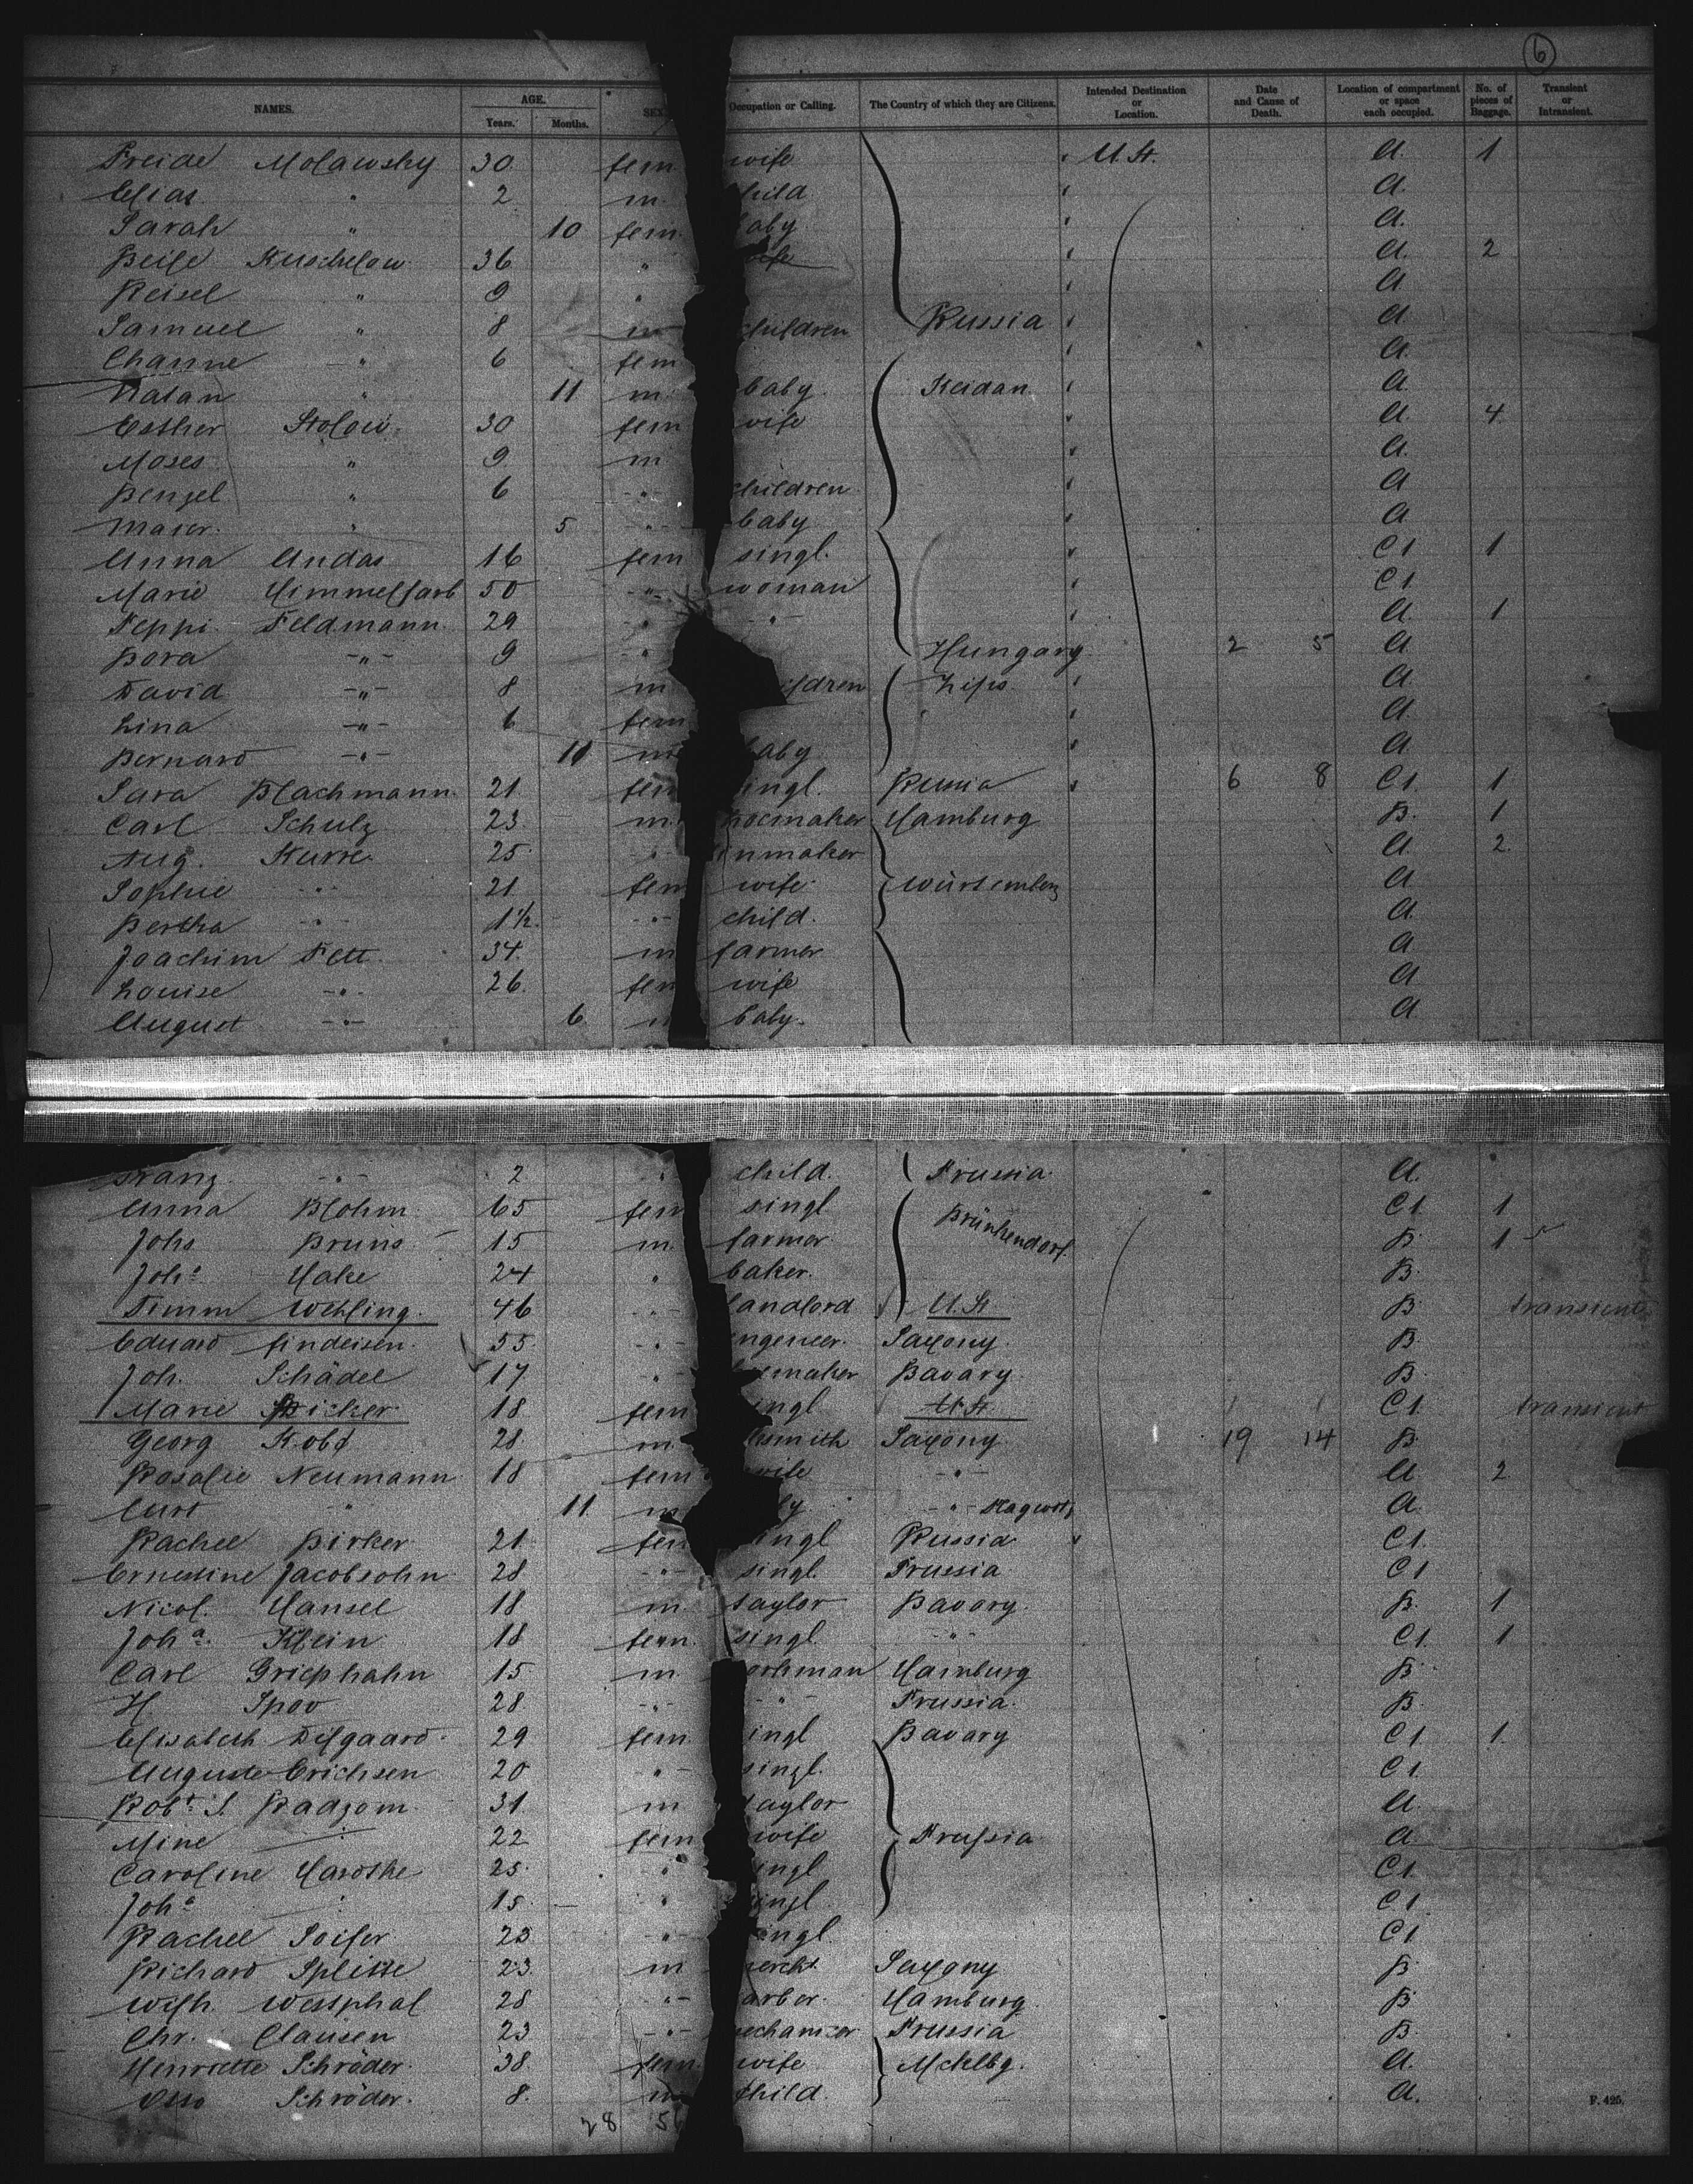 6
NAMES. AGE. Years. Months. SEX Occupation or Calling. The Country of which they are Citizens. Intended Destination or Location. Date and Cause of Death. Location of compartment or space each occupied. No. of pieces of Baggage. Transient or Intransient.
Freide Molawsky 30. fem wife U. St. A. 1
Elias " 2 m. hild A.
Sarah " 10 fem. aby A.
Beile Kuschelow 36 " ife A. 2
Reisel " 9 " A
Samuel " 8 m children Russia A
Channe " 6 fem A.
Natan " 11 m. baby. Keidan A
Esther Stolow. 30 fem wife A. 4
Moses " 9 m A.
Benzel " 6 " children A
Maier. " 5 " baby A
Anna Andas 16 fem singl. C1 1
Marie Himmelfarb 50 " woman C1.
Peppi Feldmann. 29 " " A. 1
Dora " 9 " Hungary 2 5 A
David " 8 m ildren Zips A
Lina " 6 fem A.
Bernard " 11 m aby A
Sara Blachmann. 21. fem ingl. Russia 6 8 C1. 1
Carl Schulz 23 m. hoemaker Hamburg B. 1
Aug. Kurre. 25 " nmaker A 2
Sophie " 21 fem wife Würtemberg A
Bertha " 1½ " child. A
Joachim Fett 34. m farmer A
Louise " 26. fem wife A
August " 6 m baby. A
Franz " 2 " child. Prussia A.
Anna Blohm 65 fem singl C1. 1
Johs Bruns 15 m. farmer Brünkendorf. B 1
Johs Hake 24 " baker. B.
Timm Wehling. 46 " landlord U. St. B transient
Eduard Findeisen. 55 " ngeneer. Saxony. B.
Joh. Schädel 17 " maker Bavary. B
Marie Bicker 18 fem ngl U. St. C1. transient
Georg Kobt 28 m. ksmith Saxony 19 14 B
Rosalie Neumann 18 fem wife " A 2
Curt " 11 m y. " A.
Rachel Birker 21 fem ingl Russia " C1.
Ernestine Jacobsohn 28 " singl. Prussia C1
Nicol. Hansel 18 m taylor Bavary. B. 1
Joha. Klein 18 fem. singl. " C1. 1
Carl Griephahn 15 m orkman Hamburg B
H Spov 28. " " Prussia. B
Elisabeth Dilgaard 29 fem. ingl Bavary C1 1.
Auguste Erichsen 20 " singl. C1.
Robt. S. Radzom. 31 m taylor A.
Mine " 22 fem wife Prussia A
Caroline Haroske 25. " ingl C1.
Joha " 15. " ingl C1.
Rachel Soifer 23 " ingl. C1.
Richard Splitte 23. m ercht Saxony B
Wilh. Westphal 28 " arber. Hamburg. B
Chr. Clausen 23 " echanicer Prussia B.
Henriette Schröder. 38 fem. wife Mcklbg. A.
Otto Schröder. 8. m child A.
28 5
F. 425.